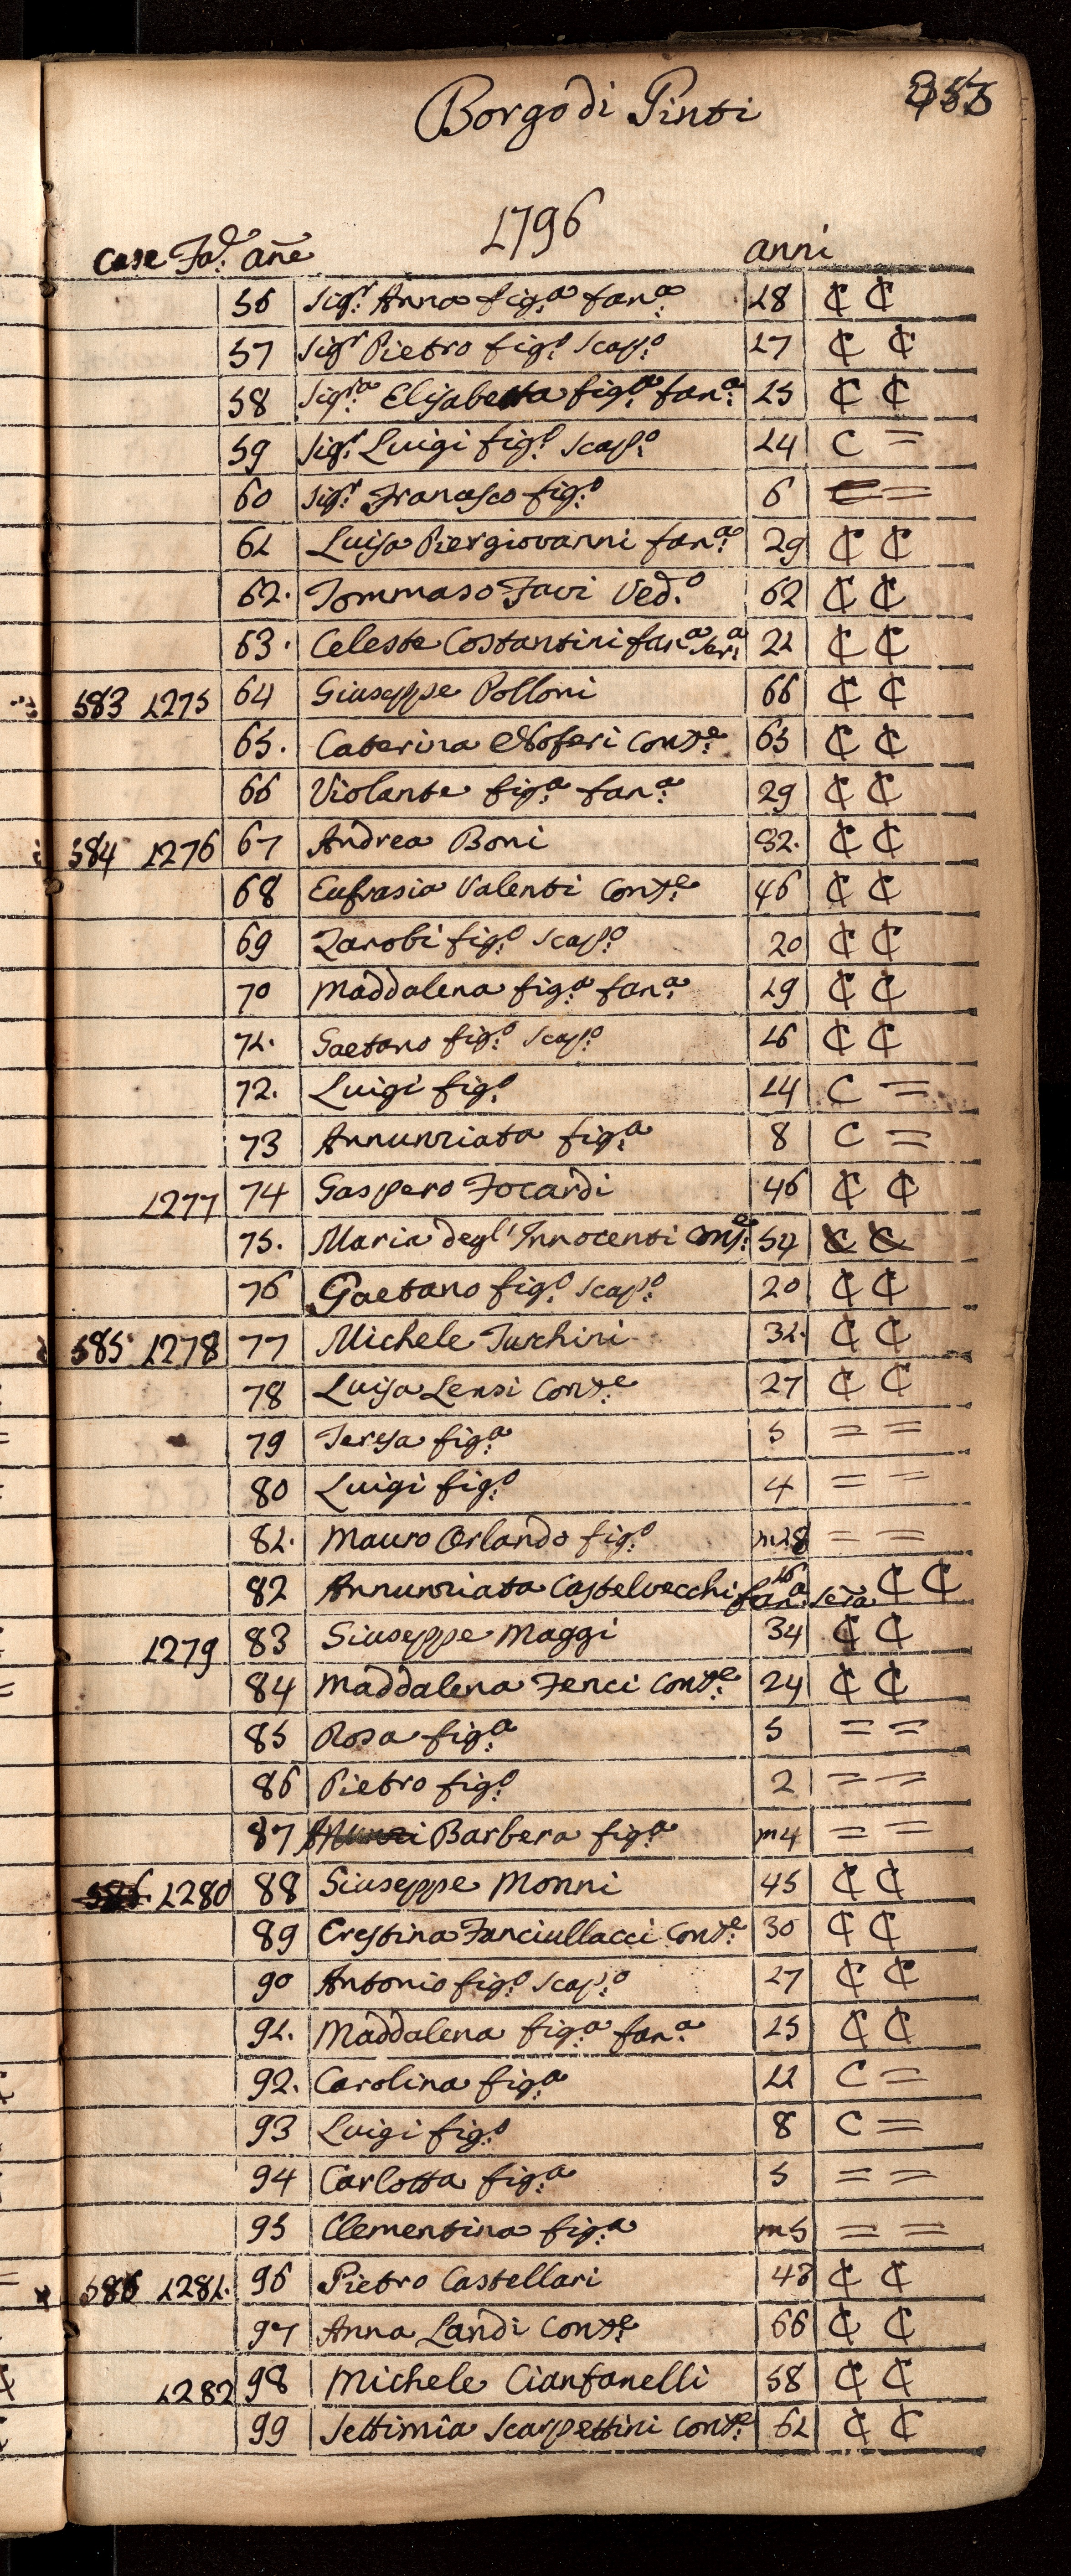 Borgo di Pinti
1796
Case Fa.e añe anni
56 Sig.r Anna fig.a fan.a 18 ₵ ₵
57 Sig.r Pietro fig.o Scap.o 17 ₵ ₵
58 Sig.ra Elisabetta fig.a fan.a 15 ₵ ₵
59 Sig.r Luigi fig.o Scap.o 14 C =
60 Sig.r Francesco fig.o 6 = =
61 Luisa Piergiovanni fan.a 29 ₵ ₵
62. Tommaso Favi Ved.o 62 ₵ ₵
63. Celeste Costantini fan.a Ser.a 21 ₵ ₵
583 1275 64 Giuseppe Polloni 66 ₵ ₵
65. Caterina Noferi Cons.e 65 ₵ ₵
66 Violante fig.a fan.a 29 ₵ ₵
584 1276 67 Andrea Boni 82. ₵ ₵
68 Eufrasia Valenti Cons.e 46 ₵ ₵
69 Zanobi fig.o Scap.o 20 ₵ ₵
70 Maddalena fig.a fan.a 19 ₵ ₵
71. Gaetano fig.o Scap.o 16 ₵ ₵
72. Luigi fig.o 14 C =
73 Annunziata fig.a 8 C =
1277 74 Gaspero Focardi 46 ₵ ₵
75. Maria degl'Innocenti Cons.e 54 ₵ ₵
76 Gaetano fig.o Scap.o 20 ₵ ₵
585 1278 77 Michele Turchini 31. ₵ ₵
78 Luisa Lensi Cons.e 27 ₵ ₵
79 Teresa fig.a 5 = =
80 Luigi fig.o 4 = =
81. Mauro Orlando fig.o m18 = =
82 Annunziata Castelvecchi fan.a Serva 16 ₵ ₵
1279 83 Giuseppe Maggi 34 ₵ ₵
84 Maddalena Fenci Cons.e 24 ₵ ₵
85 Rosa fig.a 5 = =
86 Pietro fig.o 2 = =
87 Barbera fig.a m4 = =
1280 88 Giuseppe Monni 45 ₵ ₵
89 Crestina Fanciullacci Cons.e 30 ₵ ₵
90 Antonio fig.o Scap.o 17 ₵ ₵
91. Maddalena fig.a fan.a 15 ₵ ₵
92. Carolina fig.a 11 C =
93 Luigi fig.o 8 C =
94 Carlotta fig.a 5 = =
95 Clementina fig.a m5 = =
586 1281. 96 Pietro Castellari 48 ₵ ₵
97 Anna Landi Cons.e 66 ₵ ₵
1282 98 Michele Cianfanelli 58 ₵ ₵
99 Settimia Scarpettini Cons.e 61 ₵ ₵